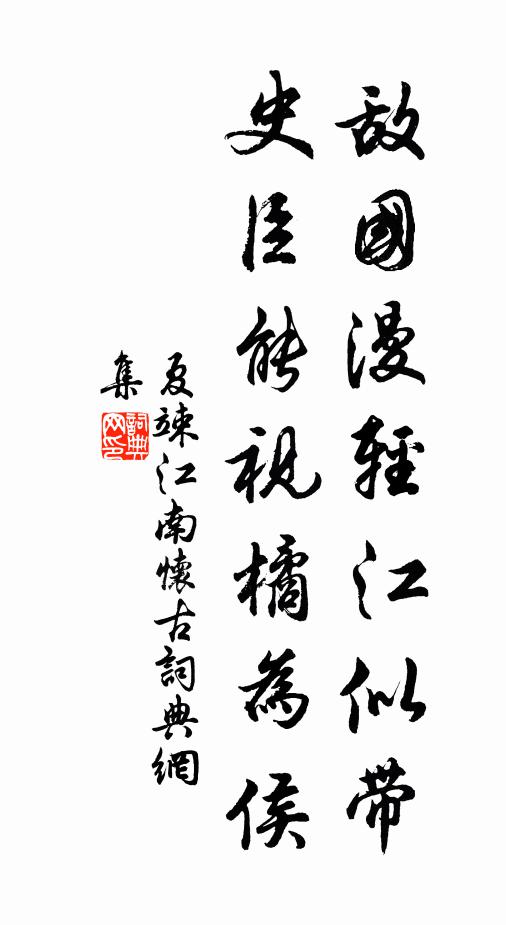 敌國漫輕江似帶
史臣能視橘為侯
夏竦江南懷古詞典網
集
詞典网印